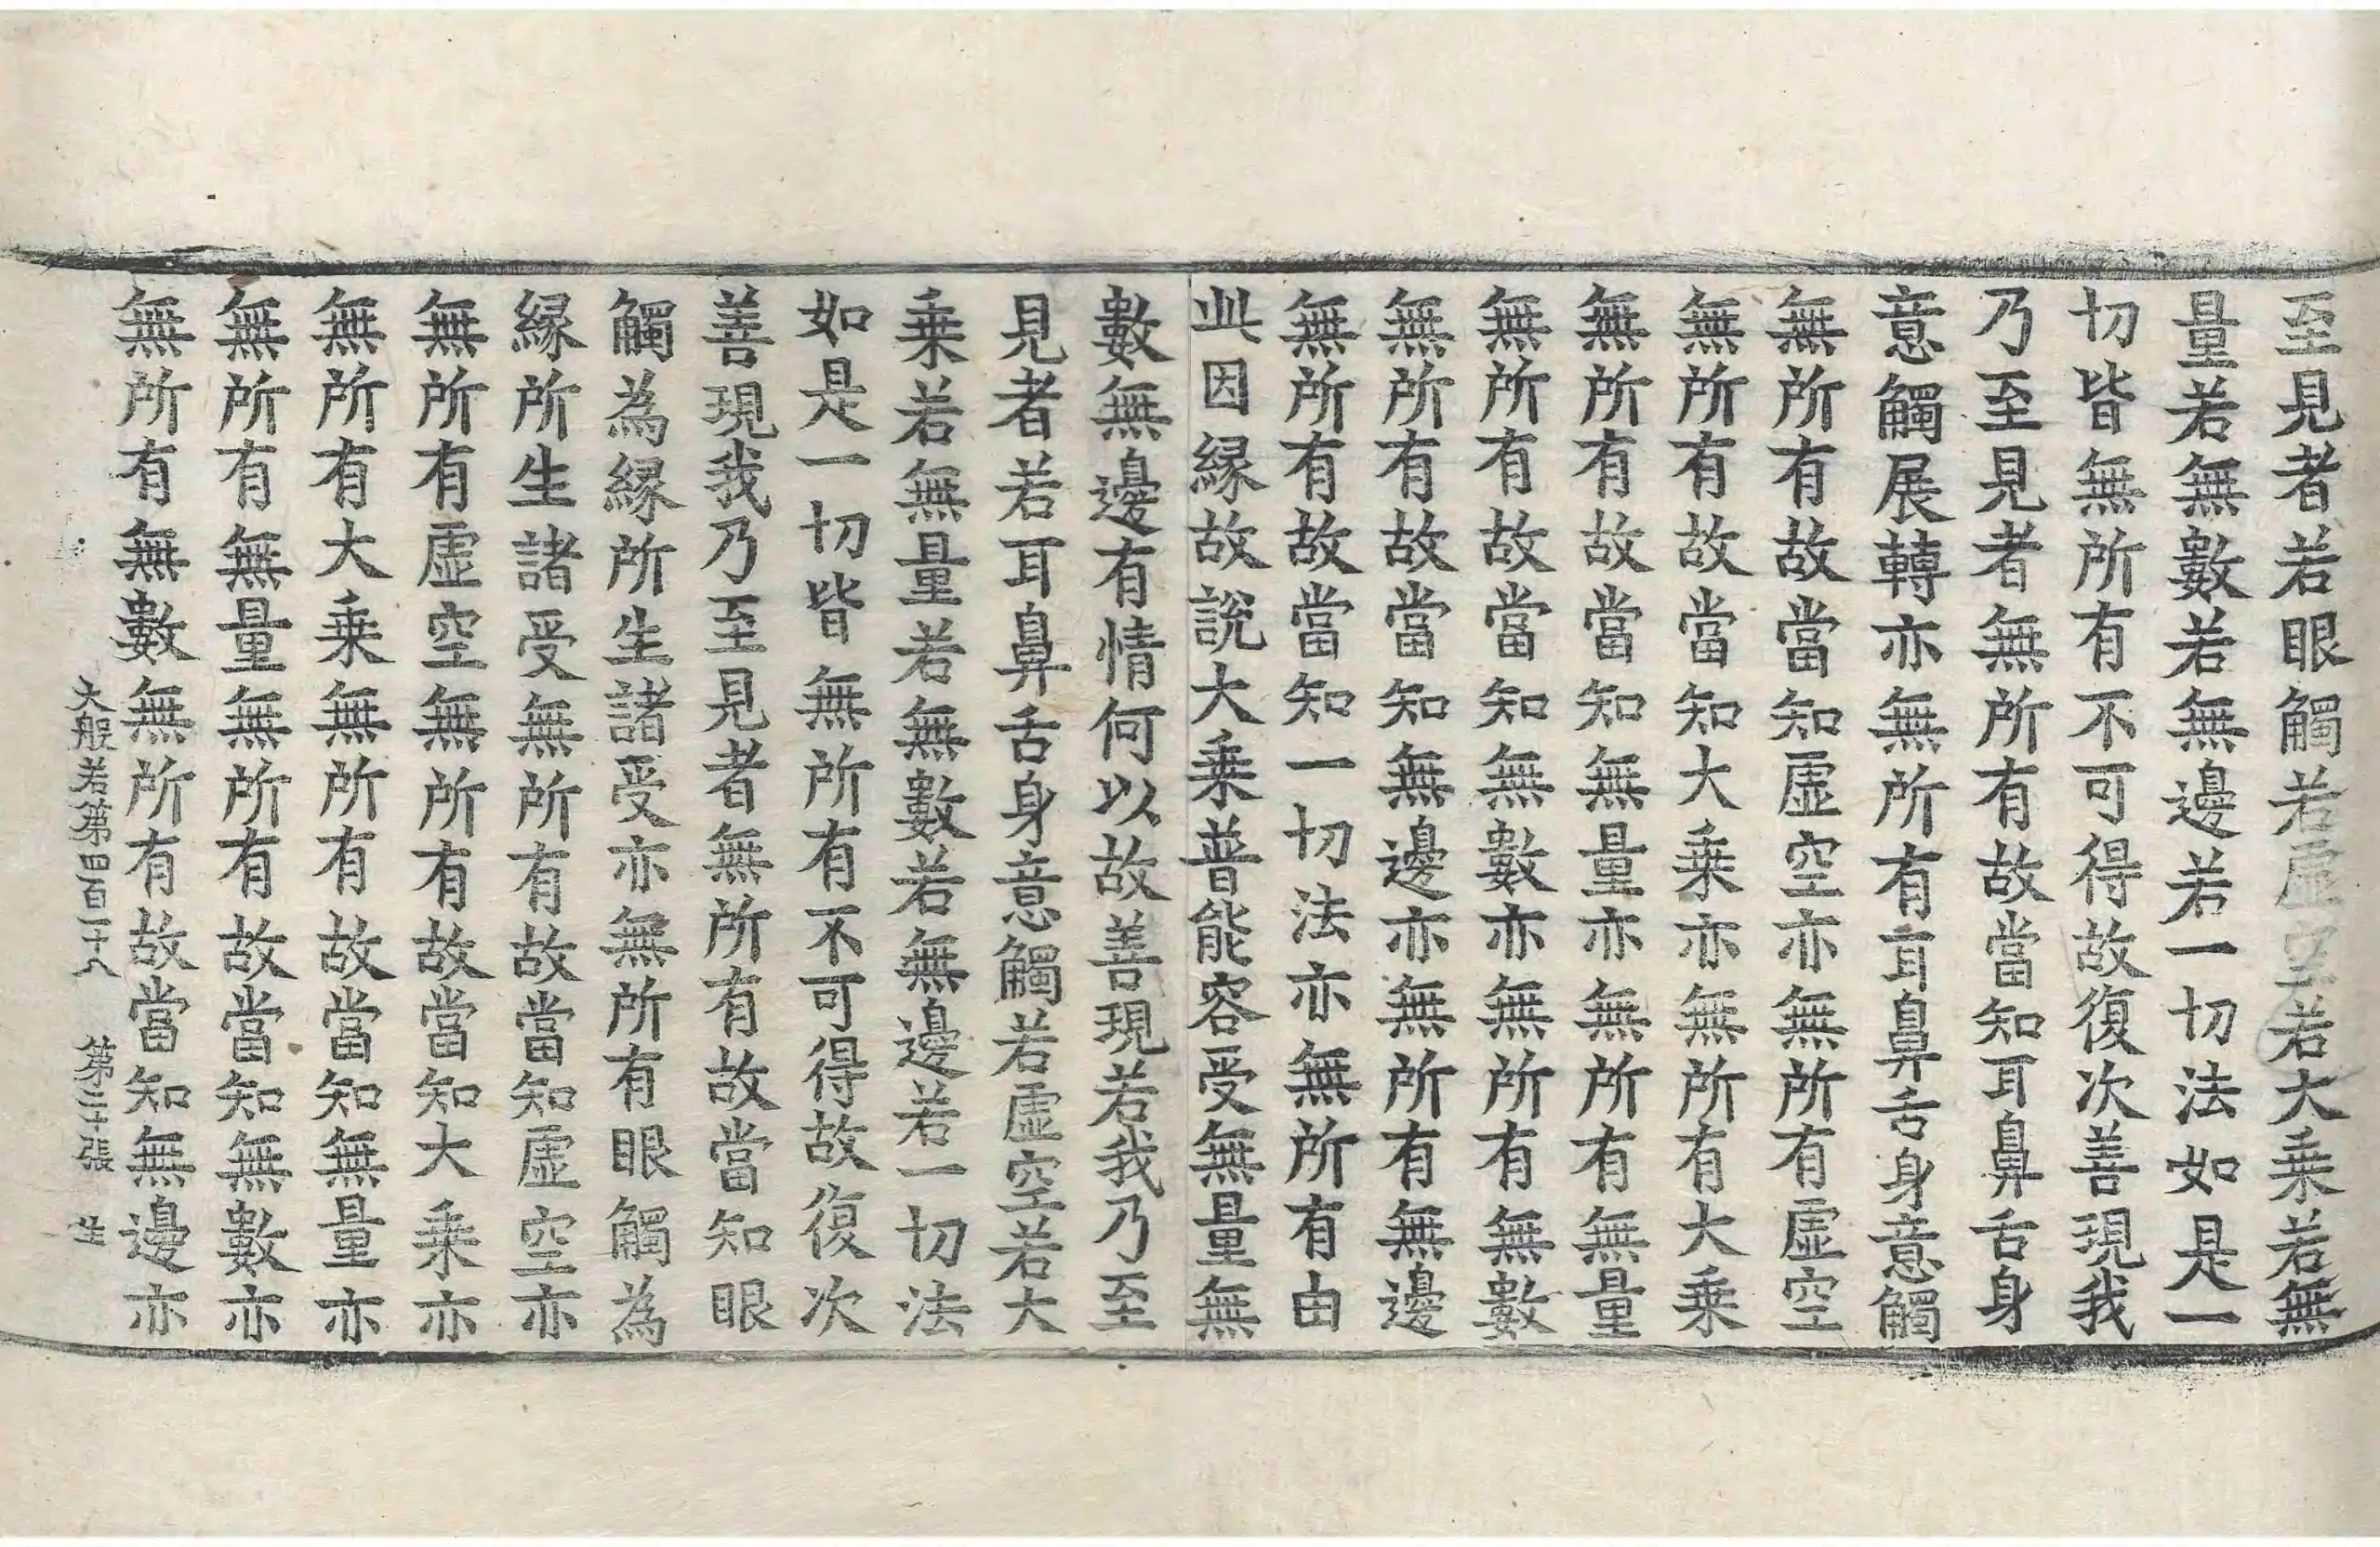 至見者若眼觸若虛空若大乗若無
量若無數若無邊若一切法如是一
切皆無所有不可得故復次善現我
乃至見者無所有故當知耳鼻舌身
意觸展轉亦無所有耳鼻舌身意觸
無所有故當知虛空亦無所有虛空
無所有故當知大乗亦無所有大乗
無所有故當知無量亦無所有無量
無所有故當知無數亦無所有無數
無所有故當知無邊亦無所有無邊
無所有故當知一切法亦無所有由
此因緣故說大乗普能容受無量無
數無邊有情何以故善現若我乃至
見者若耳鼻舌身意觸若虛空若大
乗若無量若無數若無邊若一切法
如是一切皆無所有不可得故復次
善現我乃至見者無所有故當知眼
觸為緣所生諸受亦無所有眼觸為
緣所生諸受無所有故當知虛空亦
無所有虛空無所有故當知大乗亦
無所有大乗無所有故當知無量亦
無所有無量無所有故當知無數亦
無所有無數無所有故當知無邊亦
大般若第四百一十八 第二十張